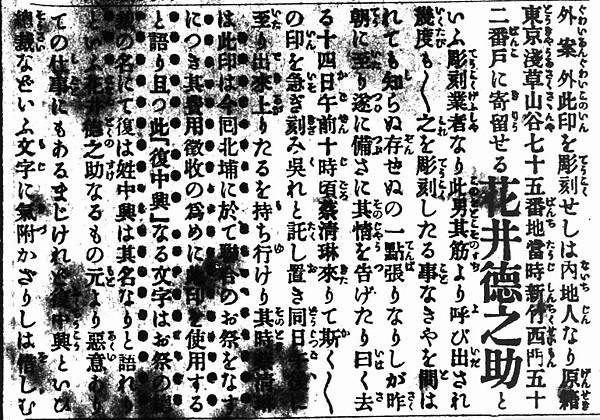 外 案外此印を彫刻せしは內地人なり原籍
東京淺草山谷七十五番地當時新竹西門五十
二番戶に寄留せる花井德之助と
いふ彫刻業者なり此男其筋より呼び出され
幾度も〱之を彫刻したる事なきやを問は
れても知らぬ存せぬの一點張りなりしが昨
朝に至り遂に備さに其情を告げたり曰く去
る十四日午前十時頃蔡清琳來りて斯く〱
の印を急ぎ刻み吳れと託し置き同日
至り出來上りたるを持ち行けり其時清琳
は此印は今回北埔に於て聯合のお祭をなす
につき其費用徵收の爲めに此印を使用する
と語り且つ此「復中興」なる文字はお祭の
裁の名にて復は姓中興は其名なりと語れり
といふ花井德之助なるもの元より惡意あり
ての仕事にもあるまじけれど復中興といひ
總裁などいふ文字に氣附かざりしは惜しむ